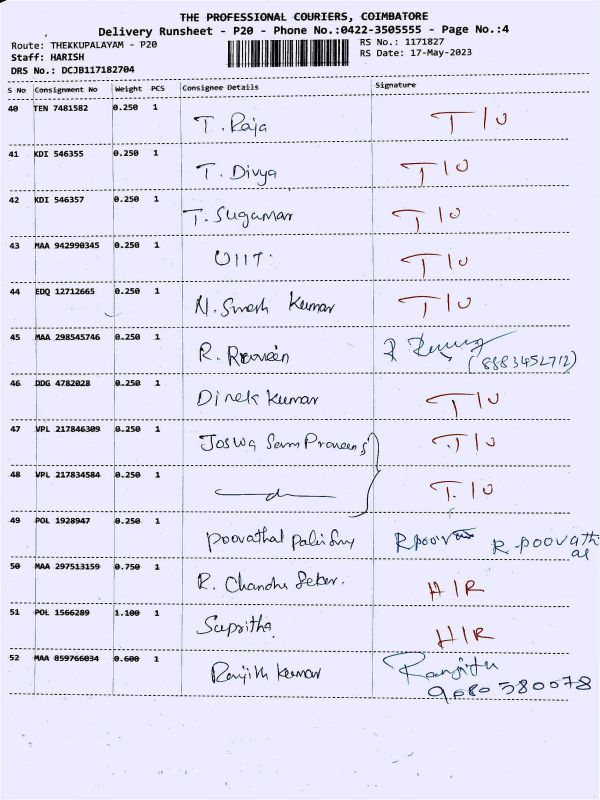 THE PROFESSIONAL COURIERS, COIMBATORE
Delivery Runsheet - P20 - Phone No.:0422-3505555 - Page No.:4
Route: THEKKUPALAYAM - P20 RS No.: 1171827
Staff: HARISH RS Date: 17-May-2023
DRS No.: DCJB117182704
S No Consignment No Weight PCS Consignee Details Signature
40 TEN 7481582 0.250 1 T. Raja T/U
41 KDI 546355 0.250 1 T. Divya T/U
42 KDI 546357 0.250 1 T. Sugamar T/U
43 MAA 942990345 0.250 1 UIIT. T/U
44 EDQ 12712665 0.250 1 N. Kumar T/U
45 MAA 298545746 0.250 1 R. Raveen (8883452712)
46 DDG 4782028 0.250 1 Dinek Kumar T/U
47 VPL 217846309 0.250 1 Joswa Sam Praveen T/U
48 VPL 217834584 0.250 1 T.U
49 POL 1928947 0.250 1 Poovathal R poovathal
50 MAA 297513159 0.750 1 R. Chandru Seker. H/R
51 POL 1566289 1.100 1 Supritha H/R
52 MAA 859766034 0.600 1 Ranjith Kumar Ranjith
9080580078